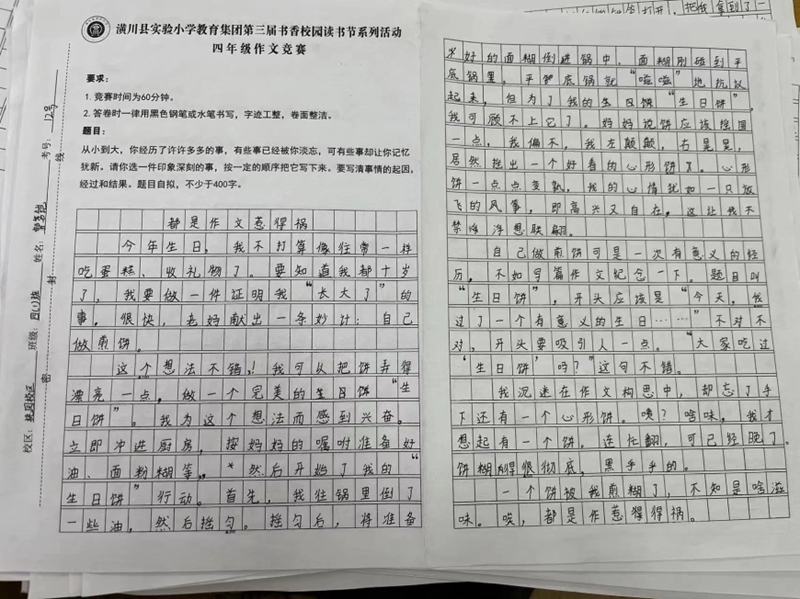 潢川县实验小学教育集团第三届书香校园读书节系列活动
四年级作文竞赛
要求：
1. 竞赛时间为60分钟。
2. 答卷时一律用黑色钢笔或水笔书写，字迹工整，卷面整洁。
题目：
从小到大，你经历了许许多多的事，有些事已经被你淡忘，可有些事却让你记忆
犹新。请你选一件印象深刻的事，按一定的顺序把它写下来。要写清事情的起因，
经过和结果。题目自拟，不少于400字。
校区：桃园校区 班级：四(1)班 姓名： 考号：12号
密 封 线
都是作文惹得祸
今年生日，我不打算像往常一样
吃蛋糕、收礼物了。要知道我都十岁
了，我要做一件证明我“长大了”的
事。很快，老妈献出一条妙计：自己
做煎饼。
这个想法不错，！我可以把饼弄得
漂亮一点，做一个完美的生日饼“生
日饼”。我为这个想法而感到兴奋。
立即冲进厨房，按妈妈的嘱咐准备好
油、面粉糊等，然后开始了我的“
生日饼”行动。首先，我往锅里倒了
一些油，然后摇匀。摇匀后，将准备
求好的面糊倒进锅中。面糊刚碰到平
底锅里，平底锅就“嗞嗞”地抗议
起来，但为了我的生日饼“生日饼”，
我可顾不上它了。妈妈说饼应该摇圆
一点，我偏不，我左颠颠，右晃晃，
居然摇出一个好看的心形饼了。心形
饼一点点变熟，我的心情犹如一只放
飞的风筝，即高兴又自在，这让我不
禁浮想联翩。
自己做煎饼可是一次有意义的经
历，不如写篇作文纪念一下。题目叫
“生日饼”，开头应该是“今天，我
过了一个有意义的生日……”不对不
对，开头要吸引人一点。“大家吃过
‘生日饼’吗？”这句不错。
我沉迷在作文构思中，却忘了手
下还有一个心形饼。咦？啥味，我才
想起有一个饼，连忙翻，可已经晚了。
饼糊得很彻底，黑乎乎的。
一个饼被我煎糊了，不知是啥滋
味。唉，都是作惹得祸。